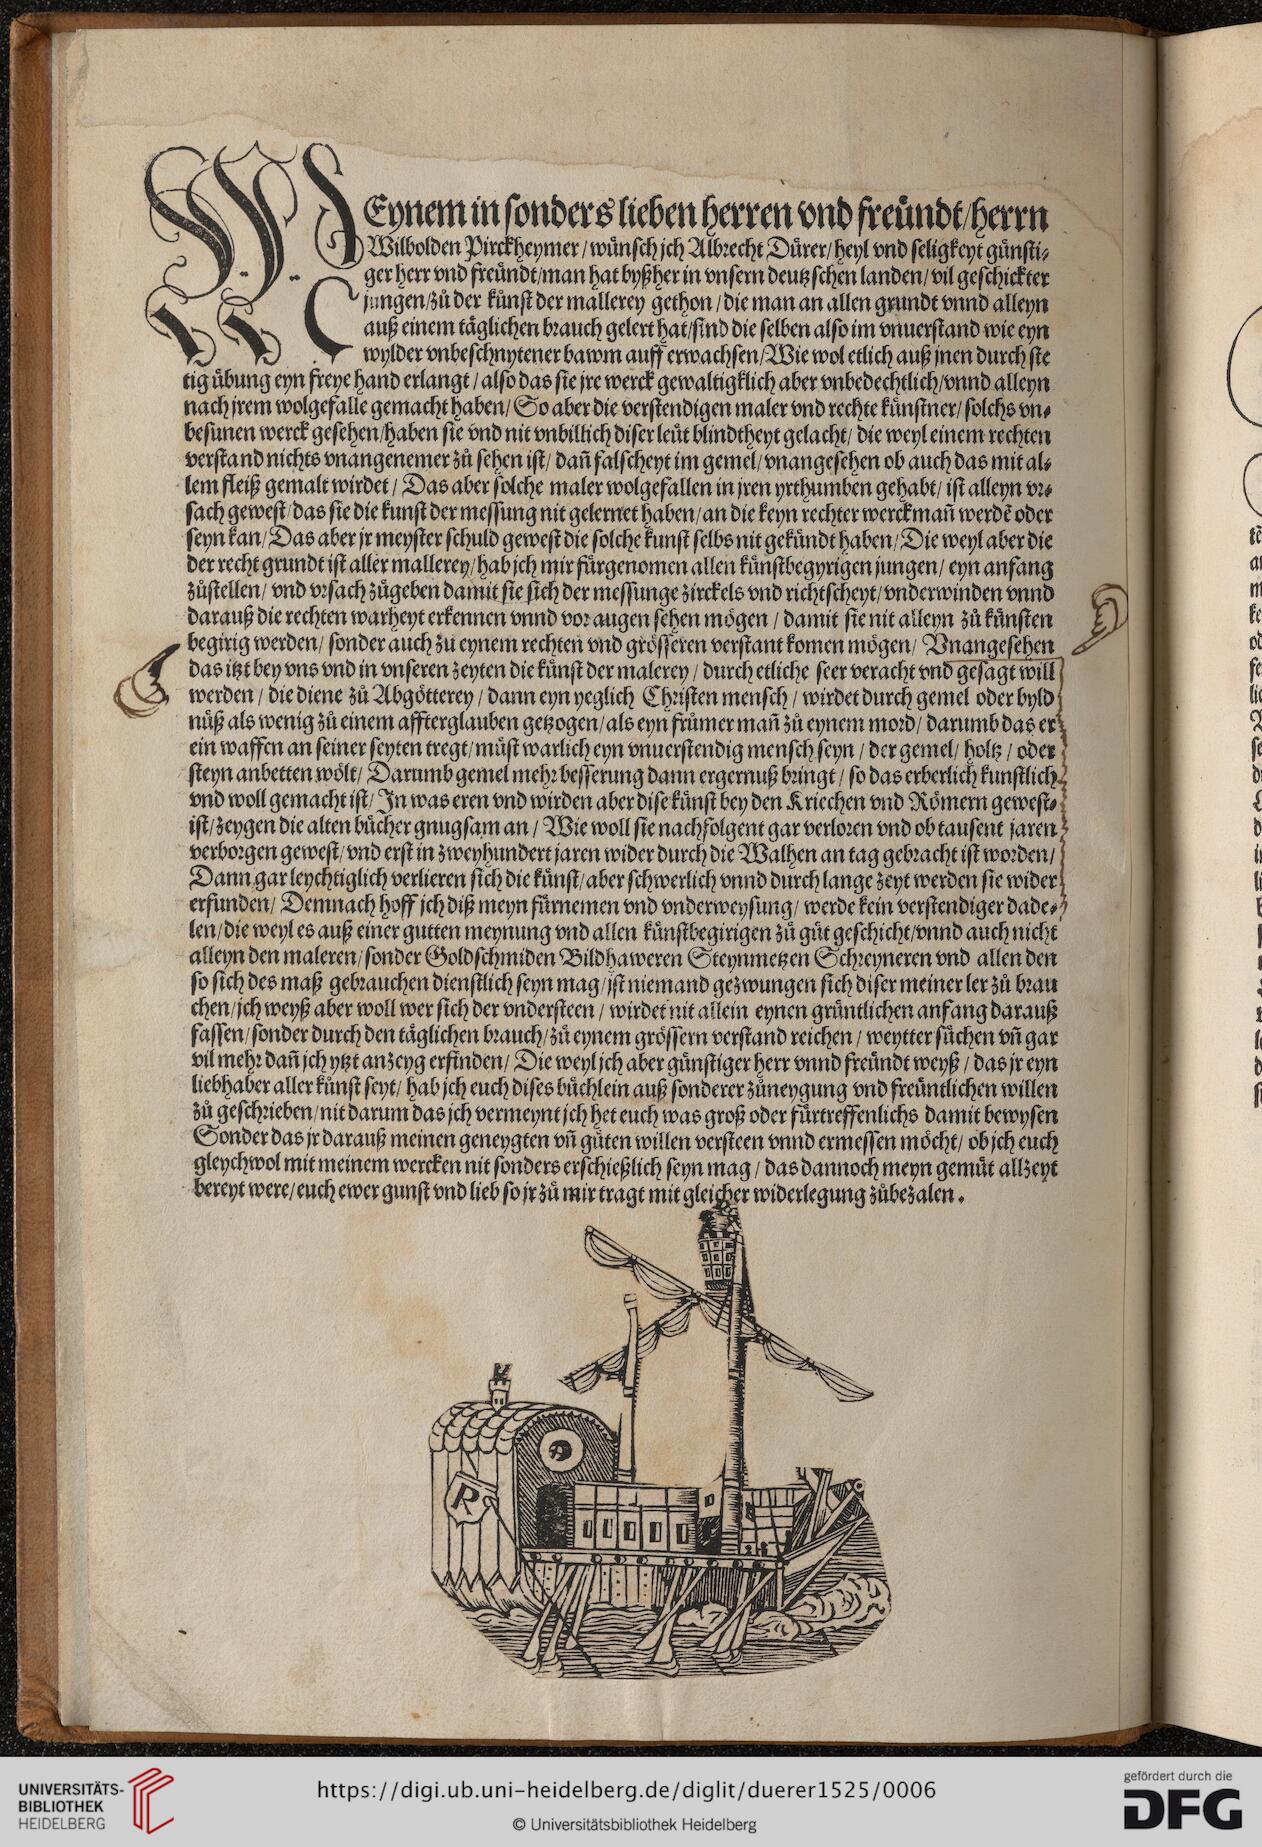 MEynem in sonders lieben herren vnd freündt/herrn
Wilbolden Pirckheymer/wünsch jch Albrecht Dürer/heyl vnd seligkeyt günsti⸗
ger herr vnd freündt/man hat byßher in vnsern deutzschen landen/vil geschickter
jungen/zů der künst der mallerey gethon/die man an allen grundt vnnd alleyn
auß einem täglichen brauch gelert hat/sind die selben also im vnuerstand wie eyn
wylder vnbeschnytener bawm auff erwachsen/Wie wol etlich auß jnen durch ste
tig übung eyn freye hand erlangt/also das sie jre werck gewaltigklich aber vnbedechtlich/vnnd alleyn
nach jrem wolgefalle gemacht haben/So aber die verstendigen maler vnd rechte künstner/solchs vn⸗
besunen werck gesehen/haben sie vnd nit vnbillich diser leüt blindtheyt gelacht/die weyl einem rechten
verstand nichts vnangenemer zů sehen ist/dañ falscheyt im gemel/vnangesehen ob auch das mit al⸗
lem fleiß gemalt wirdet/Das aber solche maler wolgefallen in jren yrthumben gehabt/ist alleyn vr⸗
sach gewest/das sie die kunst der messung nit gelernet haben/an die keyn rechter werckmañ werdẽ oder
seyn kan/Das aber jr meyster schuld gewest die solche kunst selbs nit gekündt haben/Die weyl aber die
der recht grundt ist aller mallerey/hab jch mir fürgenomen allen künstbegyrigen jungen/eyn anfang
zůstellen/vnd vrsach zůgeben damit sie sich der messunge zirckels vnd richtscheyt/vnderwinden vnnd
darauß die rechten warheyt erkennen vnnd vor augen sehen mögen/damit sie nit alleyn zů künsten
begirig werden/sonder auch zu eynem rechten vnd grösseren verstant komen mögen/Vnangesehen
das itzt bey vns vnd in vnseren zeyten die künst der malerey/durch etliche seer veracht vnd gesagt will
werden/die diene zů Abgötterey/dann eyn yeglich Christen mensch/wirdet durch gemel oder byld
nüß als wenig zů einem affterglauben getzogen/als eyn frümer mañ zů eynem mord/darumb das er
ein waffen an seiner seyten tregt/müst warlich eyn vnuerstendig mensch seyn/der gemel/holtz/oder
steyn anbetten wölt/Darumb gemel mehr besserung dann ergernuß bringt/so das erberlich kunstlich
vnd woll gemacht ist/In was eren vnd wirden aber dise künst bey den Kriechen vnd Römern gewest⸗
ist/zeygen die alten bücher gnugsam an/Wie woll sie nachfolgent gar verloren vnd ob tausent jaren
verborgen gewest/vnd erst in zweyhundert jaren wider durch die Walhen an tag gebracht ist worden/
Dann gar leychtiglich verlieren sich die künst/aber schwerlich vnnd durch lange zeyt werden sie wider
erfunden/Demnach hoff jch diß meyn fürnemen vnd vnderweysung/werde kein verstendiger dade⸗
len/die weyl es auß einer gutten meynung vnd allen künstbegirigen zů güt geschicht/vnnd auch nicht
alleyn den maleren/sonder Goldschmiden Bildhaweren Steynmetzen Schreyneren vnd allen den
so sich des maß gebrauchen dienstlich seyn mag/jst niemand gezwungen sich diser meiner ler zů brau
chen/jch weyß aber woll wer sich der vndersteen/wirdet nit allein eynen gründtlichen anfang darauß
fassen/sonder durch den täglichen brauch/zů eynem grössern verstand reichen/weytter süchen vñ gar
vil mehr dañ jch ytzt anzeyg erfinden/Die weyl jch aber günstiger herr vnnd freündt weyß/das jr eyn
liebhaber aller künst seyt/hab jch euch dises büchlein auß sonderer zůneygung vnd freüntlichen willen
zů geschrieben/nit darum das jch vermeynt jch het euch was groß oder fürtreffenlichs damit bewysen
Sonder das jr darauß meinen geneygten vñ güten willen versteen vnnd ermessen möcht/ob jch euch
gleychwol mit meinem wercken nit sonders erschießlich seyn mag/das dannoch meyn gemüt allzeyt
bereyt were/euch ewer gunst vnd lieb so jr zů mir tragt mit gleicher widerlegung zůbezalen.
R
UNIVERSITÄTS-
BIBLIOTHEK
HEIDELBERG
https://digi.ub.uni-heidelberg.de/diglit/duerer1525/0006
© Universitätsbibliothek Heidelberg
gefördert durch die
DFG